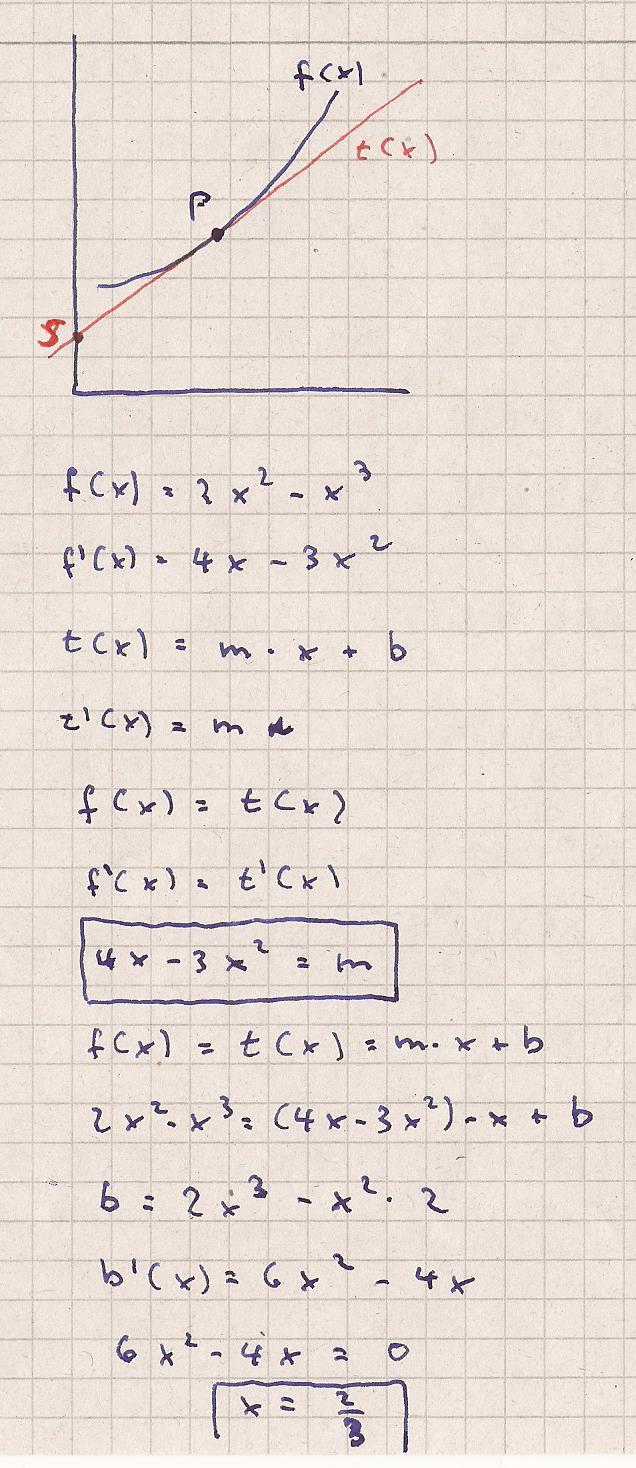 f(x)
t(x)
P
S
f(x) = 2x² - x³
f'(x) = 4x - 3x²
t(x) = m · x + b
t'(x) = m
f(x) = t(x)
f'(x) = t'(x)
4x - 3x² = m
f(x) = t(x) = m · x + b
2x² - x³ = (4x - 3x²) · x + b
b = 2x³ - x² · 2
b'(x) = 6x² - 4x
6x² - 4x = 0
x = 2/3